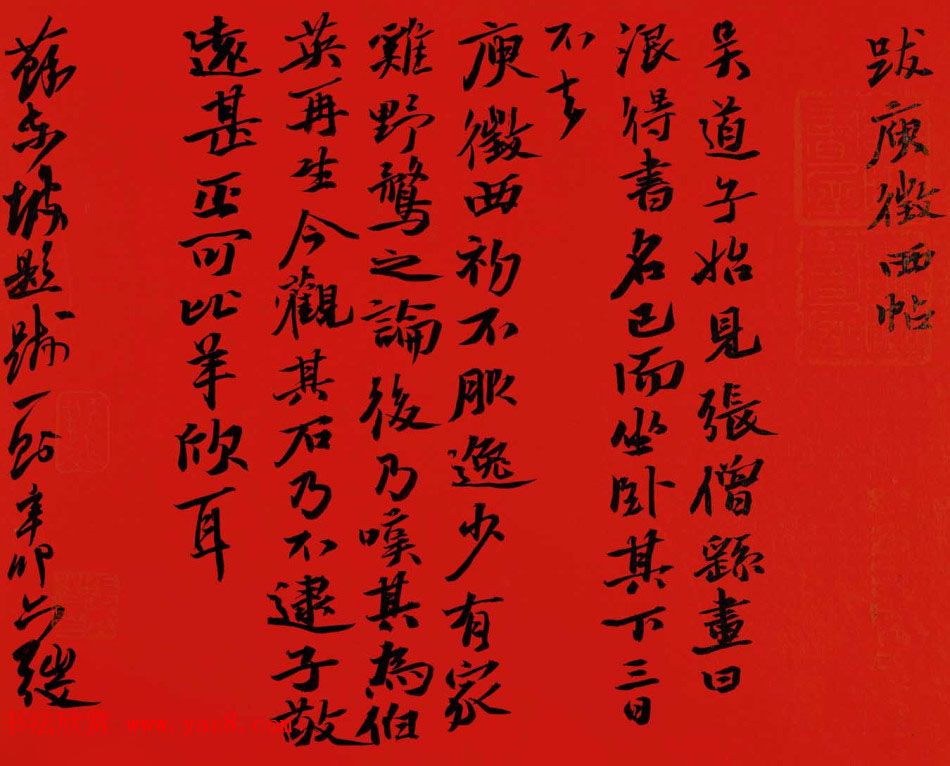 跋庾徵西帖
吳道子始見張僧繇畫曰
浪得書名已而坐卧其下三日
不去
庾徵西初不服逸少有家
雞野鶩之論後乃嘆其為伯
英再生今觀其石乃不逮子敬
遠甚正可比羊欣耳
蘇東坡題跋一則辛卯